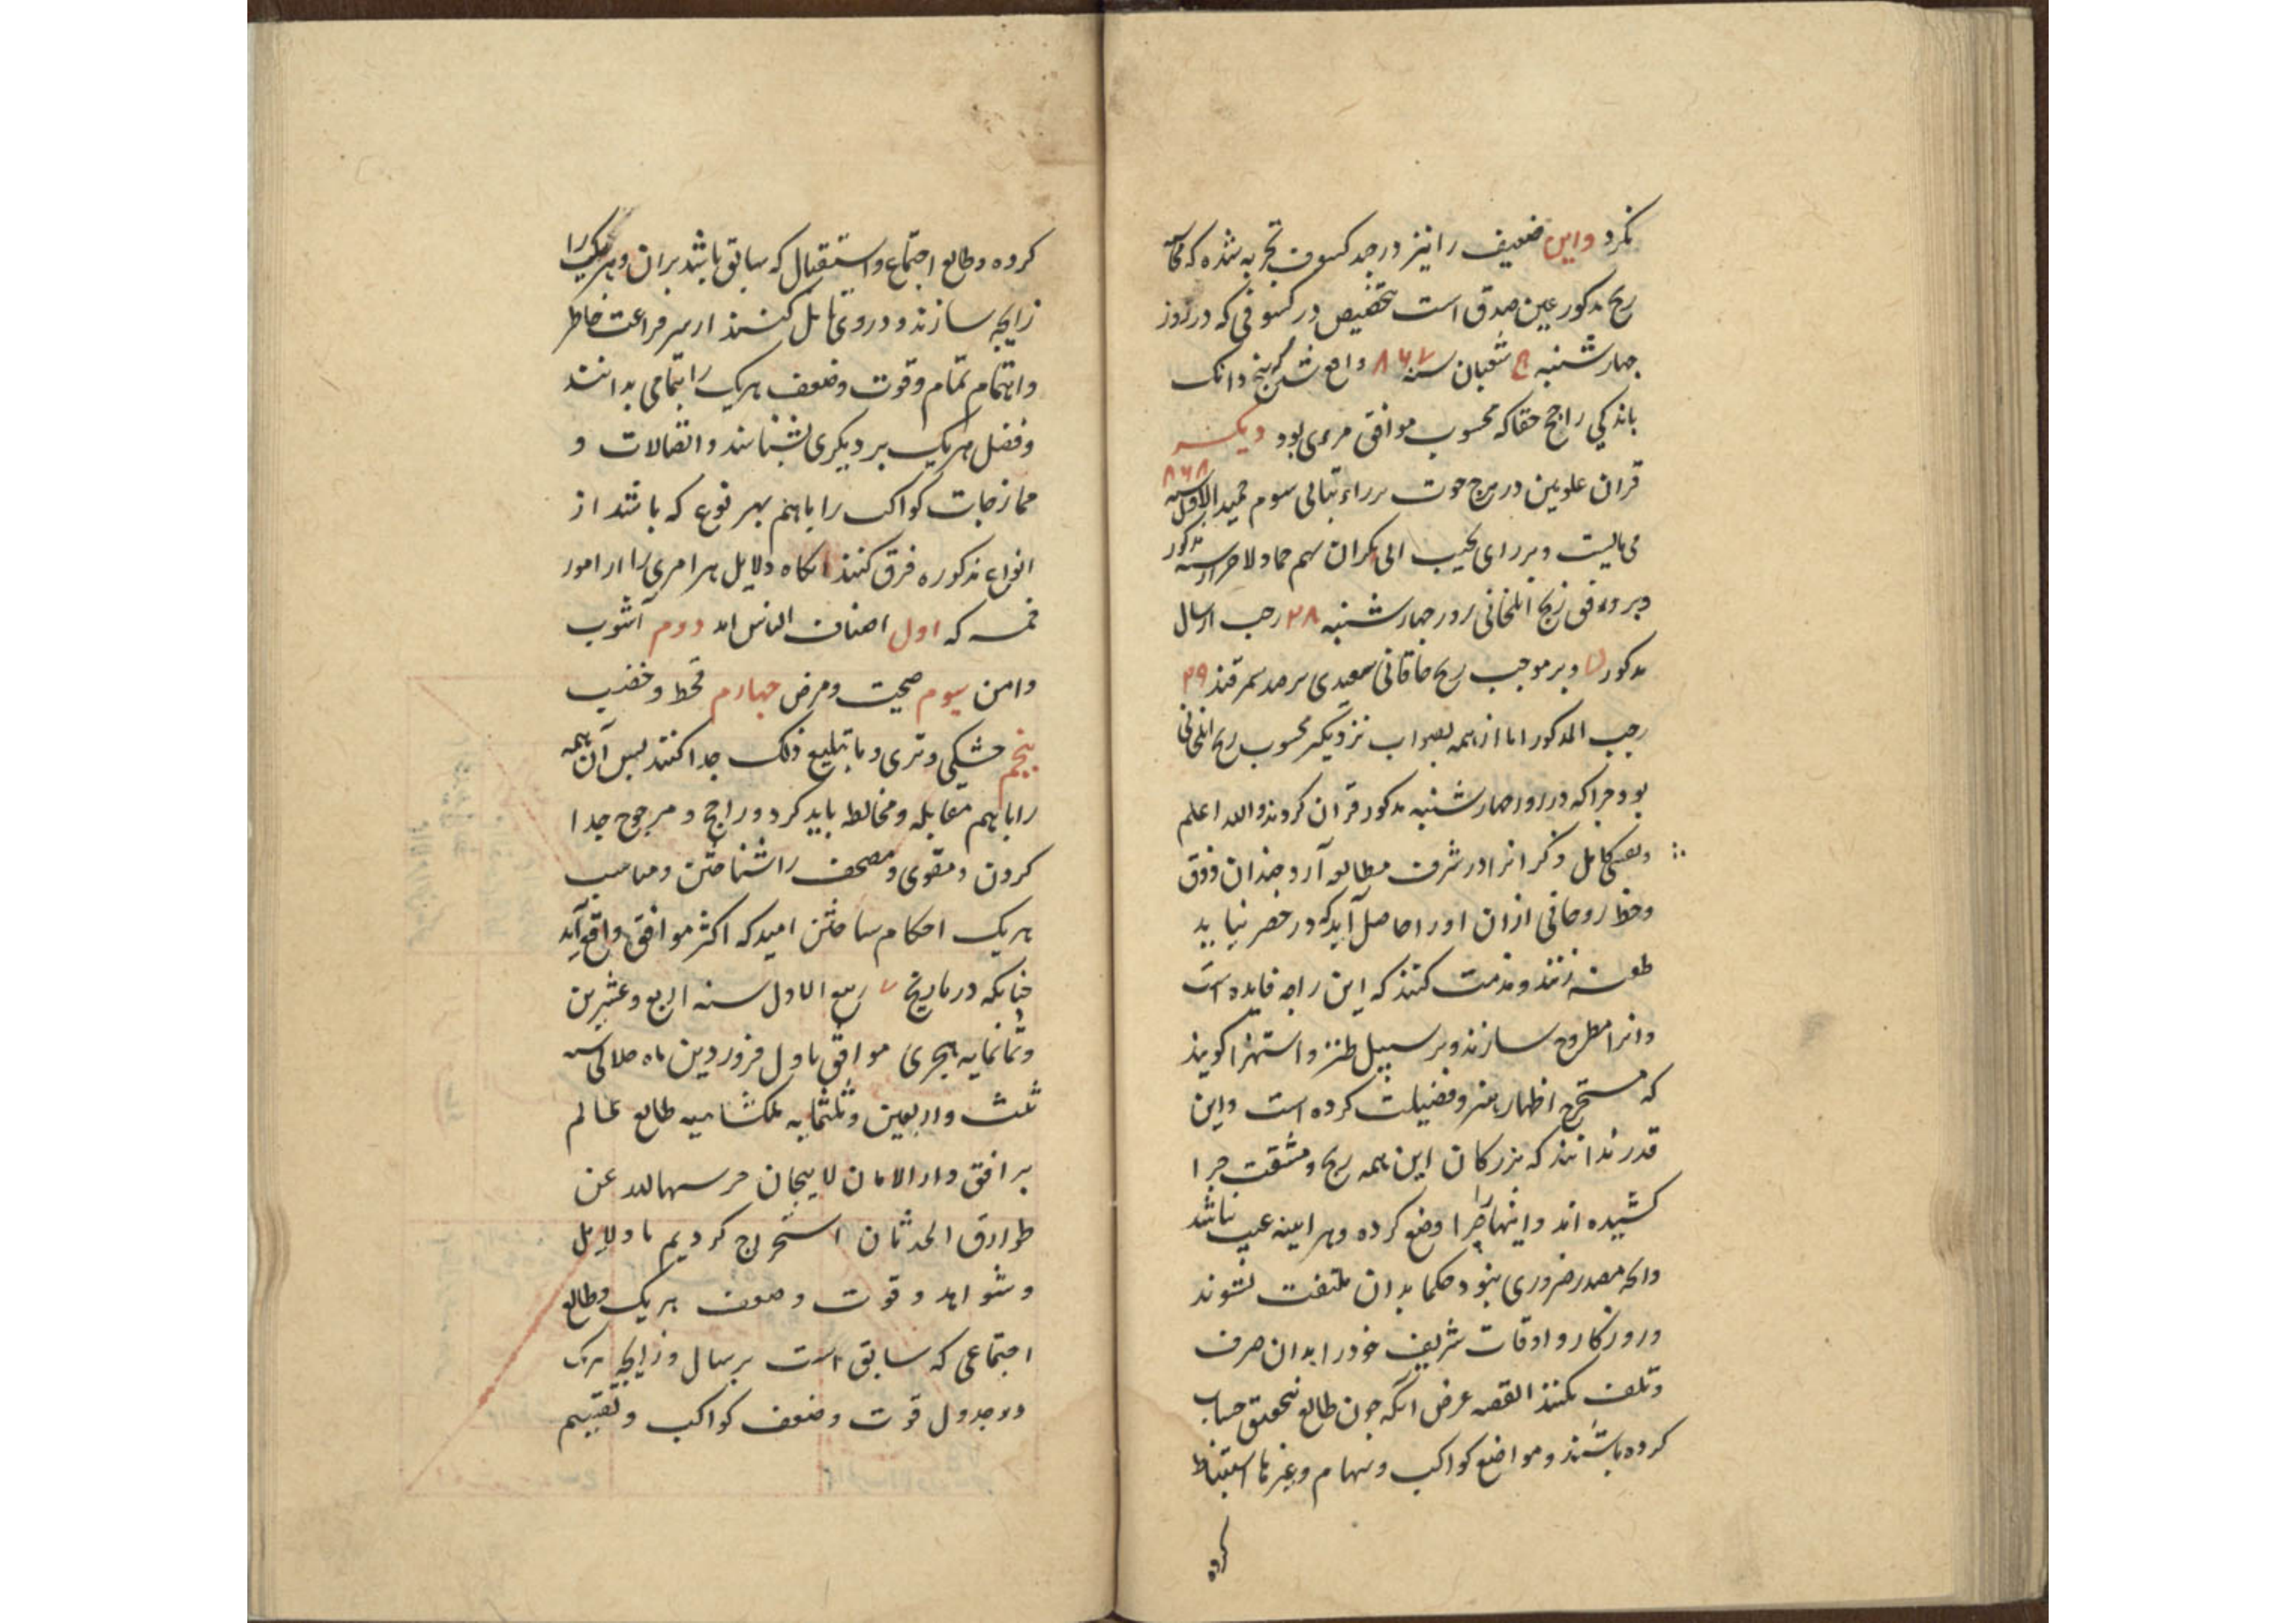 نکرد واین ضعیف را نیز درجد کسوف تجربه شده که
زیج مذکور عین صدق است بتخصیص در کسوفی که در روز
چهارشنبه شعبان سنه ۸۶۷ واقع شد که پنج دانک
باندکی راجح حقا که محسوب موافق مرءی بود دیکر
قران علویین در برج حوت بر راء سوم
می بایست وبر رای الی هم سنه مذکور
وبر وفق زیج ایلخانی روز چهارشنبه ۲۸ رجب از سال
مذکور وبر موجب زیج خاقانی سعیدی برصد سمرقند ۲۹
رجب المذکور اما از همه بصواب نزدیکتر محسوب زیج ایلخانی
بود چرا که در روز چهارشنبه مذکور قران کردند والله اعلم
کامل ذکر انرا در شرف مطالعه آرد چندان ذوق
وحظ روحانی ازان اورا حاصل آید که در حصر نیاید
طعنه زنند ومذمت کنند که این را چه فایده است
وانرا مطروح سازند وبر سبیل طنز واستهزا کویند
که مستخرج اظهار هنر وفضیلت کرده است واین
قدر ندانند که بزرکان این همه رنج ومشقت چرا
کشیده اند واینها را چرا وضع کرده وهر آینه عیب نباشد
وانچه بصدر ضروری نبود حکما بدان ملتفت نشوند
وروزکار واوقات شریف خود را بدان صرف
وتلف نکنند القصه غرض آنکه چون طالع بتحقیق حساب
کرده باشند ومواضع کواکب وسهام وغیرها استنباط
کرده
کرده وطالع اجتماع واستقبال که سابق باشد بران وهریک را
زایجه سازند ودروی تامل کنند از سر فراغت خاطر
واهتمام تمام وقوت وضعف هریک را بتمامی بدانند
وفضل هریک بر دیکری بشناسند واتصالات و
ممازجات کواکب را باهم بهر نوع که باشد از
انواع مذکوره فرق کنند انکاه دلایل هر امری را از امور
خمسه که اول اصناف الناس اند دوم آشوب
وامن سیوم صحت ومرض چهارم قحط وخصب
پنجم خشکی وتری وما یتبع ذلک جدا کنند پس آن همه
را باهم مقابله ومخالطه باید کرد وراجح ومرجوح جدا
کردن ومقوی ومضعف را شناختن ومناسب
هریک احکام ساختن امید که اکثر موافق واقع آید
چنانکه در تاریخ ۷ ربیع الاول سنه اربع وعشرین
وثمانمایه هجری موافق باول فروردین ماه جلالی سنه
ثلث واربعین وثلثمایه ملکشاهیه طالع عالم
بر افق دار الامان لاهیجان حرسها الله عن
طوارق الحدثان استخراج کردیم با دلایل
وشواهد وقوت وضعف هریک وطالع
اجتماعی که سابق است بر سال وزایجه هریک
وجدول قوت وضعف کواکب وتقسیم